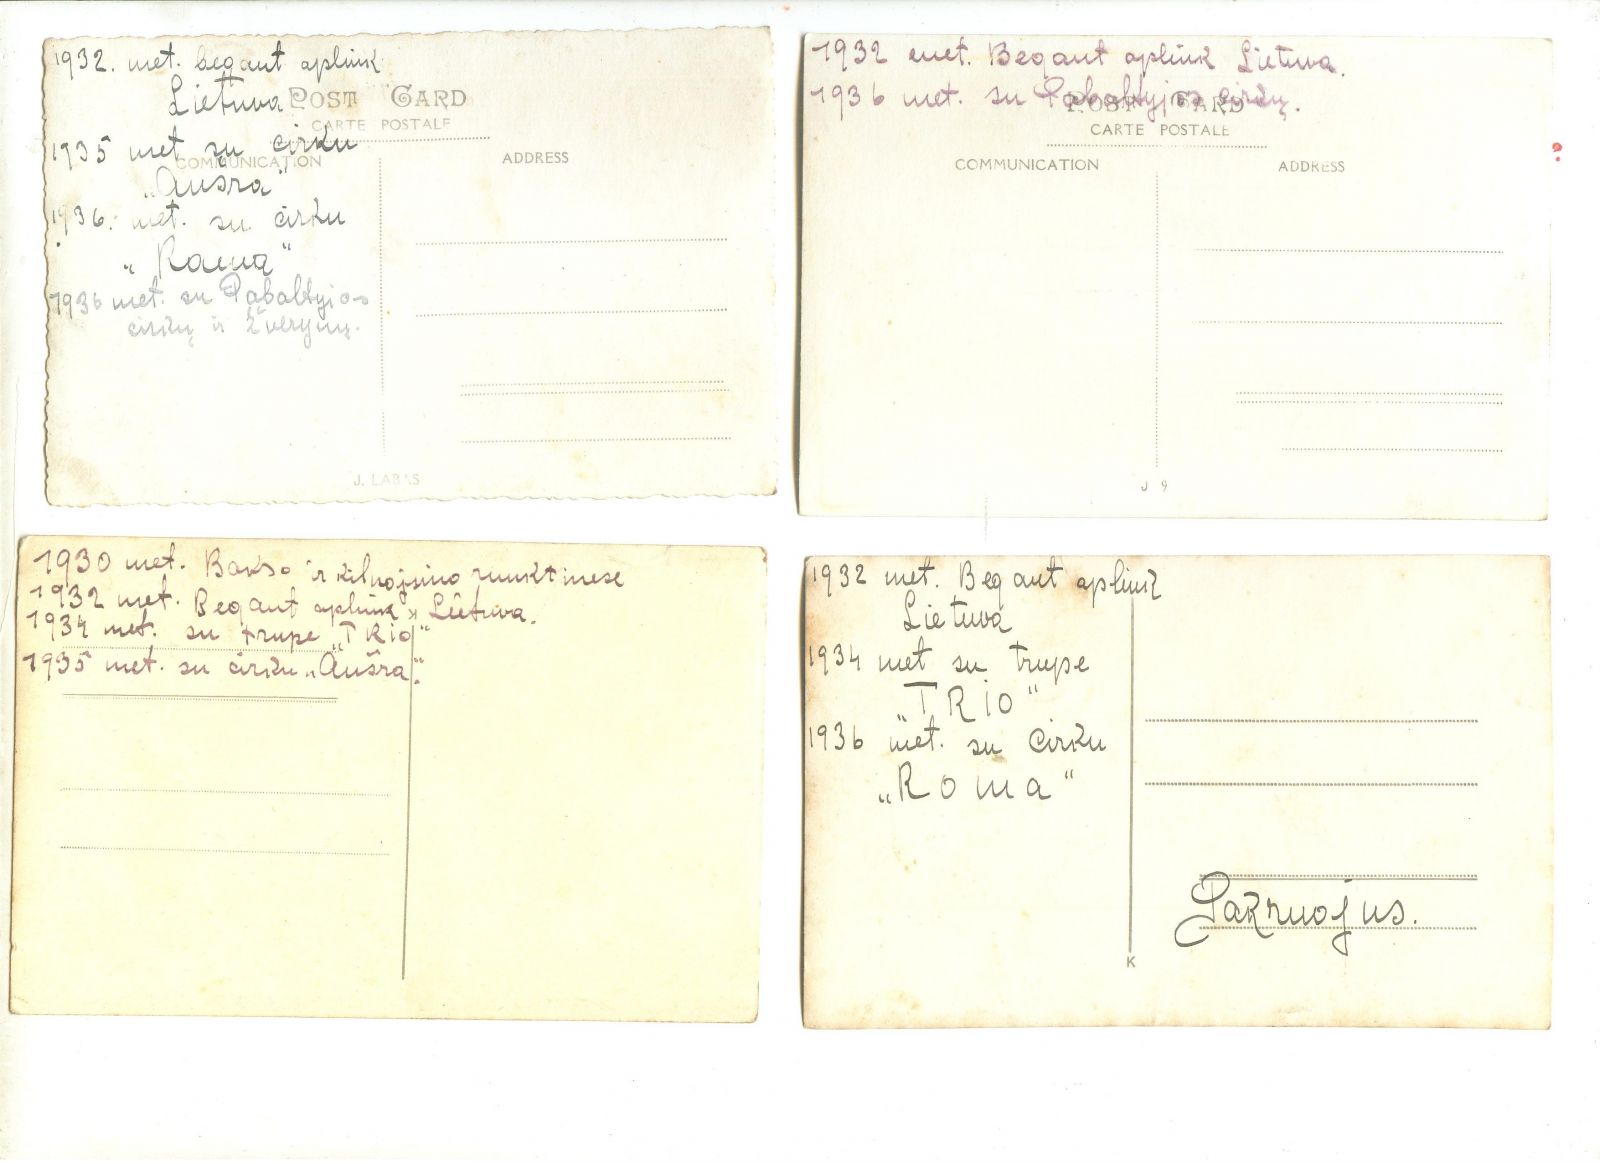 1932. met. begant aplink
Lietuva
POST CARD
CARTE POSTALE
1935 met su cirku
COMMUNICATION
ADDRESS
„Aušra"
1936. met. su cirku
„Roma"
1936 met. su Pabaltyjos
cirkų ir Žverynų.
J. LABAS
1932 met. Begant aplink Lietuva.
1936 met. su Pabaltyjos cirkų.
POST CARD
CARTE POSTALE
COMMUNICATION
ADDRESS
J 9
1930 met. Bokso ir kilnojimo runktinese
1932 met. Begant aplink Lietuva.
1934 met. su trupe „TRio"
1935 met. su cirku „Aušra".
1932 met. Begant aplink
Lietuva
1934 met su trupe
„TRio"
1936 met. su Cirku
„Roma"
Pakruojus.
K